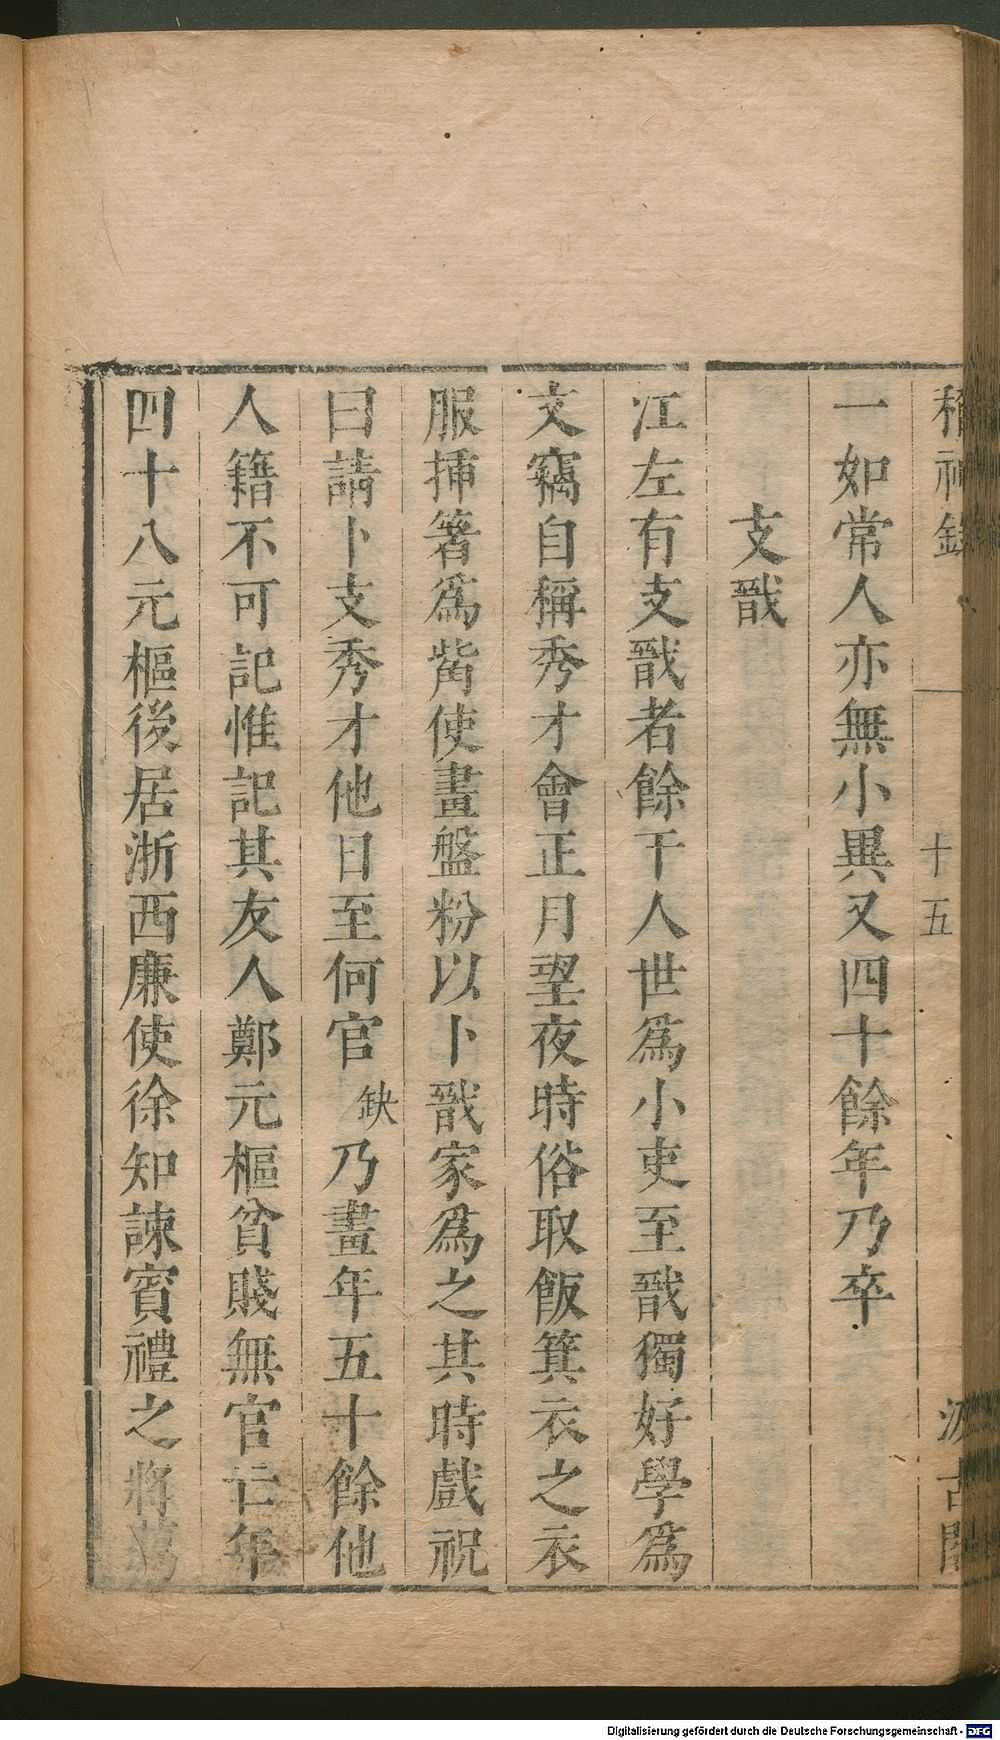 稽神錄 十五 汲古閣
一如常人亦無小異又四十餘年乃卒
支戩
江左有支戩者餘干人世爲小吏至戩獨好學爲
文竊自稱秀才會正月朢夜時俗取飯箕衣之衣
服挿箸爲觜使畫盤粉以卜戩家爲之其時戲祝
曰請卜支秀才他日至何官 缺 乃畫年五十餘他
人籍不可記惟記其友人鄭元樞貧賤無官亡年
四十八元樞後居浙西廉使徐知諫賓禮之將薦
Digitalisierung gefördert durch die Deutsche Forschungsgemeinschaft - DFG